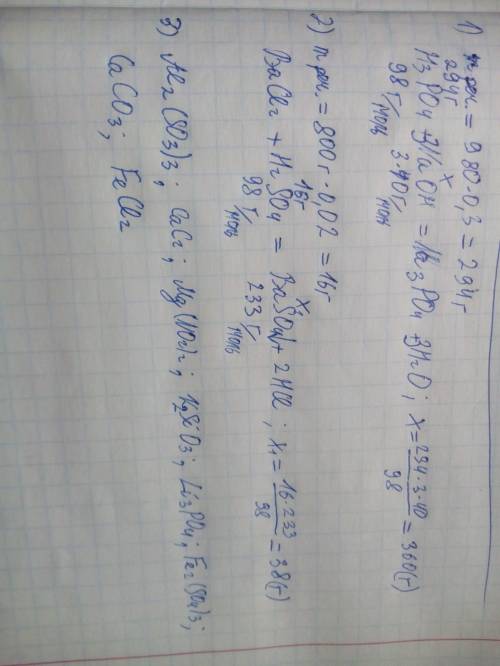 1) m реч. = 980·0,3 = 294г
294г x
H3PO4 + 3NaOH = Na3PO4 + 3H2O; x = 294·3·40 / 98 = 360(г)
98 г/моль 3·40 г/моль
2) m реч. = 800г·0,02 = 16г
16г x1
BaCl2 + H2SO4 = BaSO4↓ + 2HCl; x1 = 16·233 / 98 = 38(г)
98 г/моль 233 г/моль
3) Al2(SO3)3; Mg(NO2)2; K2SiO3; Li3PO4; Fe2(SO4)3;
CaCO3; FeCl2